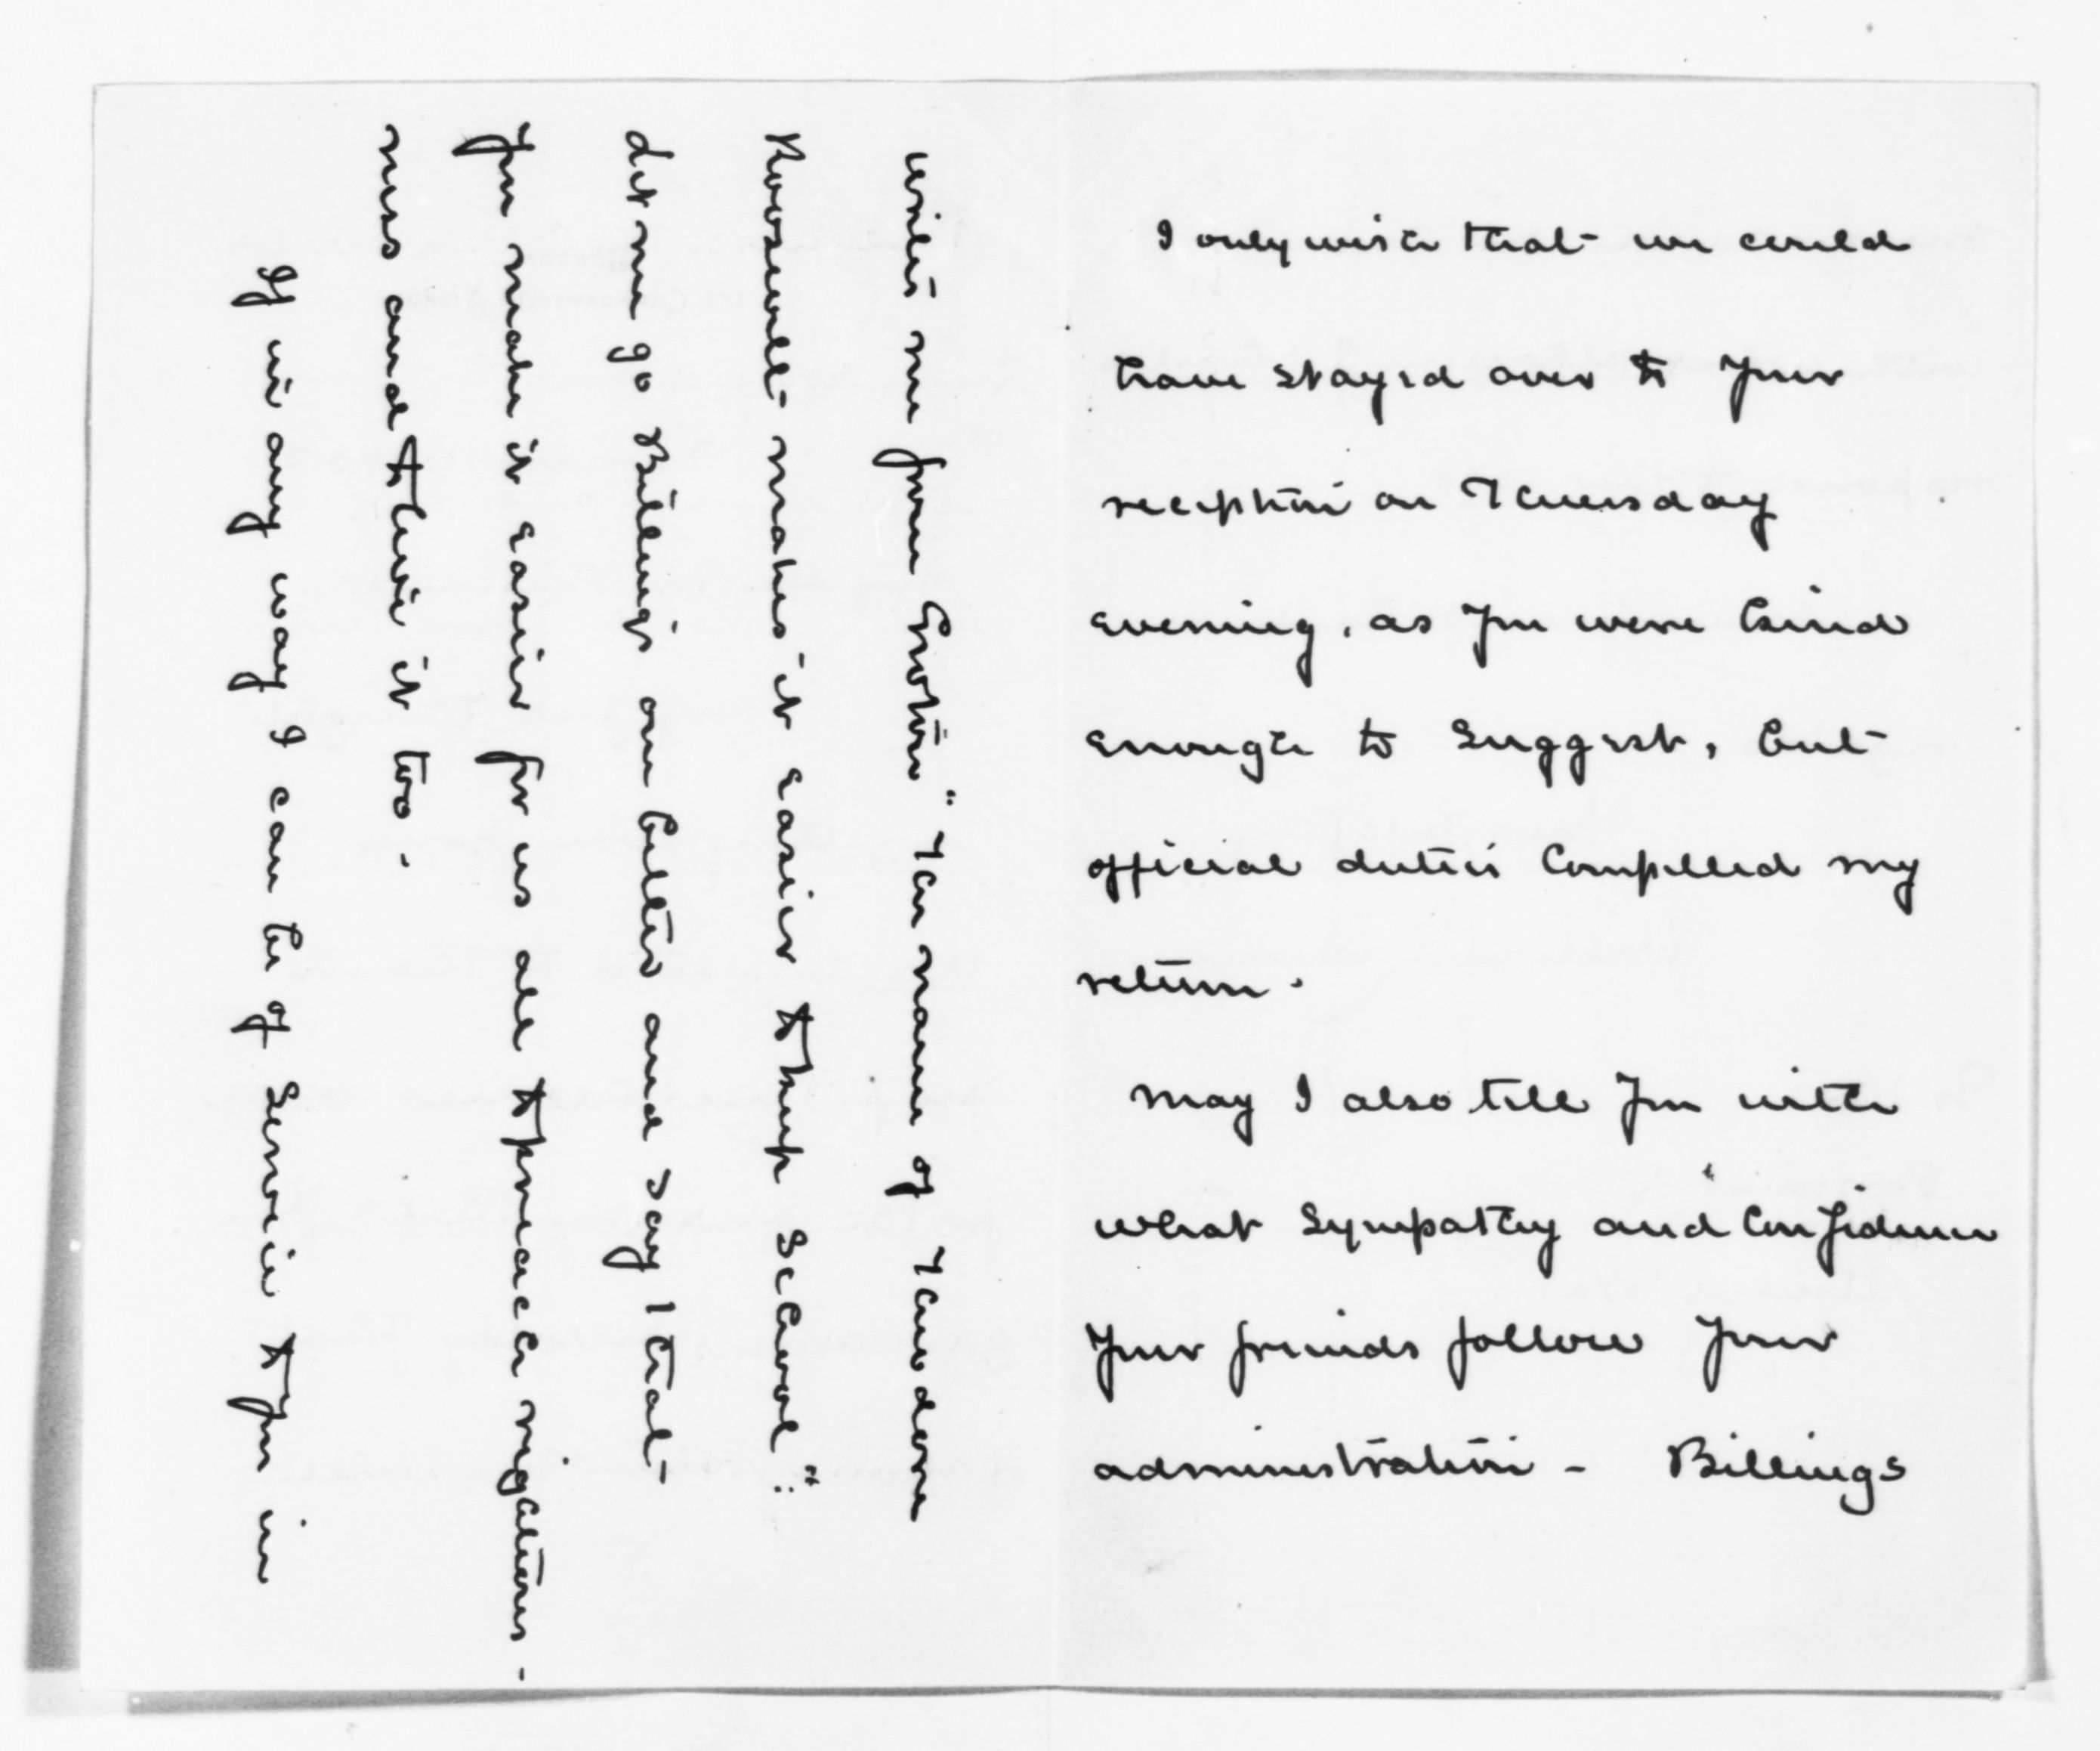 I only wish that we could
have stayed over to your
reception on Thursday
evening, as you were kind
enough to suggest, but
official duties compelled my
return.
May I also tell you with
what sympathy and confidence
your friends follow your
administration - Billings
writes me from Groton "The name of Theodore
Roosevelt makes it easier to keep school":
let me go Billings one better and say that
you make it easier for us all to preach righteous-
ness and to live it too.
If in any way I can be of service to you in